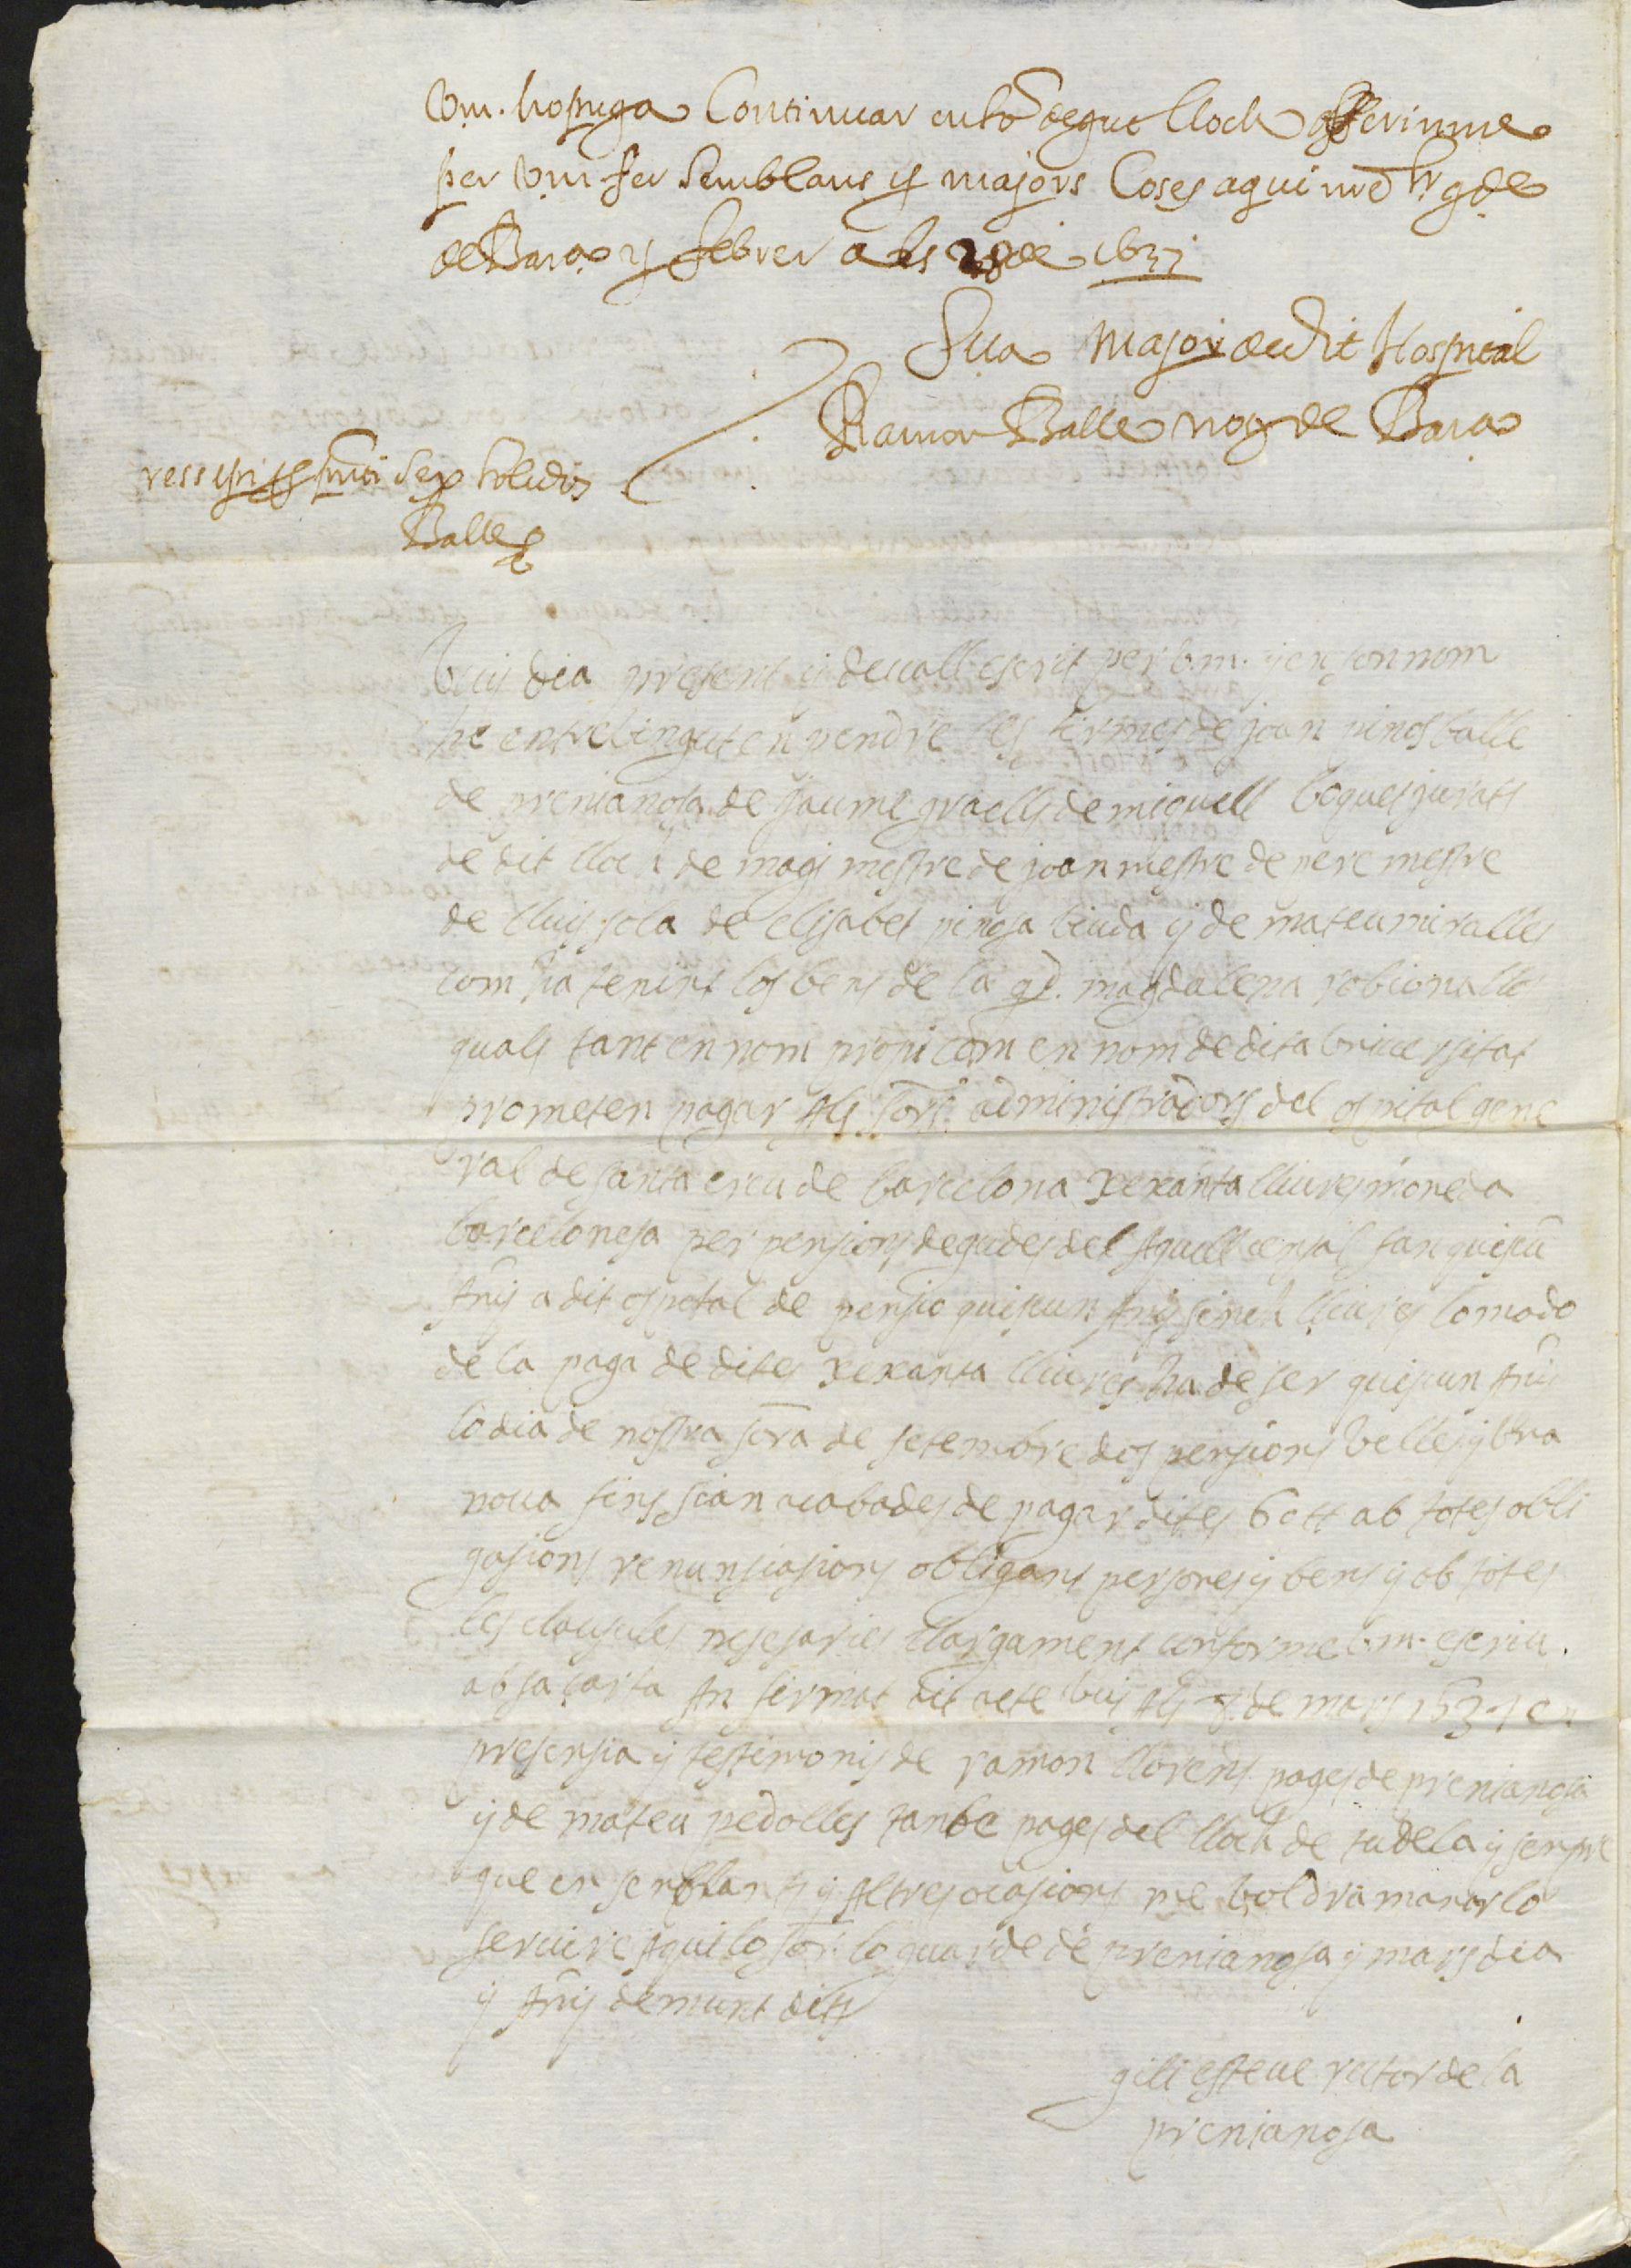 Vm. ho puga Continuar en lo degut lloch offerinme
per Vm fer Semblans y majors Coses a qui nre Sr gde
de Barna y febrer als 28 de 1631
Sua major de dit Hospital
Ramon Batlle not de Barna
sex solidos
Batlle
Vuy dia present y devall escrit per v.m. y en son nom
he entrevingut en pendre les firmes de joan pinos balle
de prenianosa de Jaume graells de miquell boques jurats
de dit lloch de magi mestre de joan mestre de pere mestre
de lluis sola de elisabet pinosa biuda y de mateu miralles
com ha tenint los bens de la qd. magdalena robionalle
quals tant en nom propi com en nom de dita vniversitat
prometen pagar Als sors. administradors del ospital gene
ral de santa creu de barcelona xexanta lliures moneda
barcelonesa per pensions degudes del Aquell censal fan quiscu
Any a dit ospital de pensio quiscun Any sinch lliures lo modo
de la paga de dites xexanta lliures ha de ser quiscun Any
lo dia de nostra sora de setembre dos pensions velles y vna
nova fins sian acabades de pagar dites 60 ll ab totes obli
gasions renunsiasions obligant persones y bens y ab totes
les clausules nesesaries llargament conforme v.m. escriu.
ab sa carta An firmat dit acte vuy Als 8 de mars 1631 en
presensia y testimonis de ramon llorens pages de preniansa
y de mateu pedolles tanbe pages del lloch de tudela y senpre
que en senblants y Altres ocasions me voldra manar lo
servire Aqui lo sor. lo guarde de preniansa y mars dia
y Any demunt dits
gili esteve rector de la
prenianosa